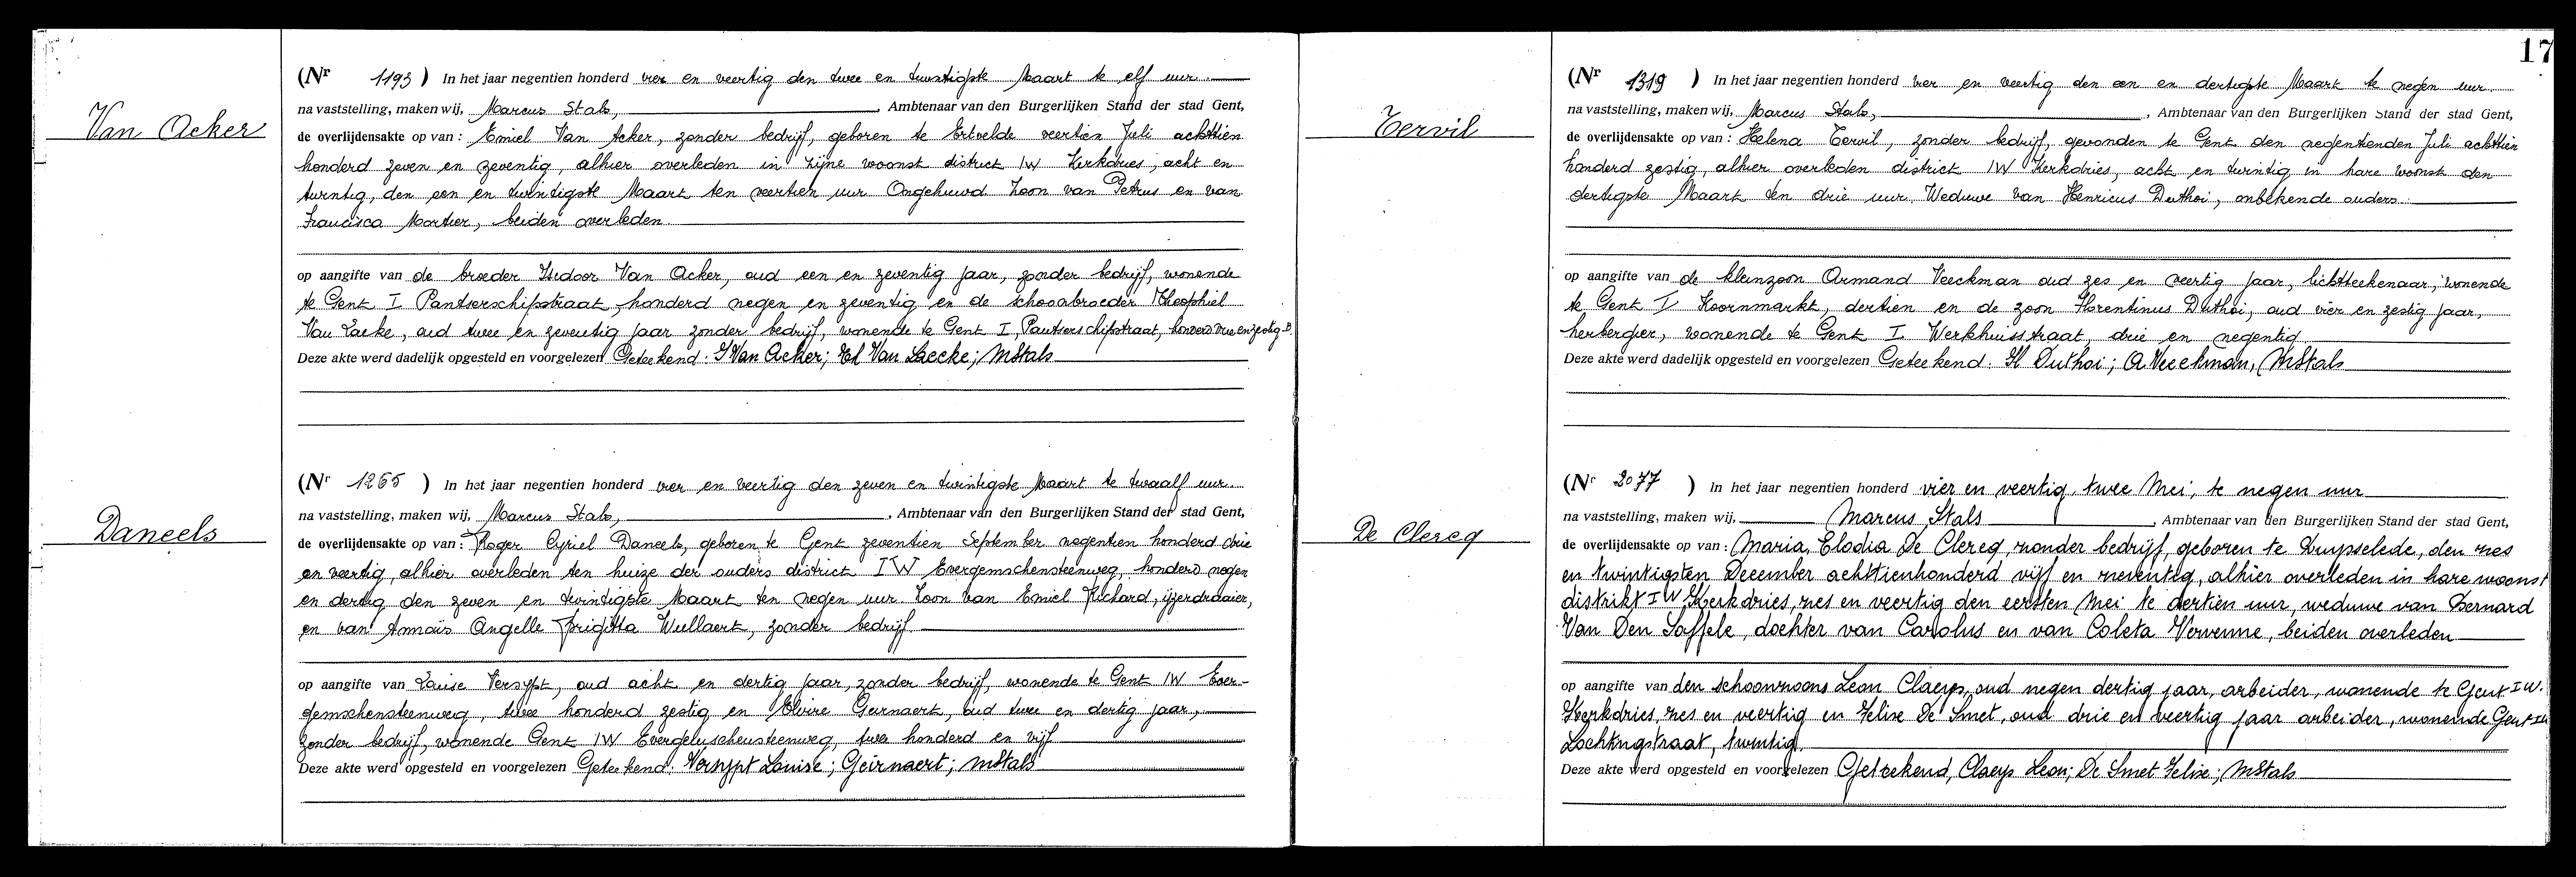 Van Acker
(Nr 1193) In het jaar negentien honderd vier en veertig den twee en twintigste Maart te elf uur
na vaststelling, maken wij, Marcus Stals, , Ambtenaar van den Burgerlijken Stand der stad Gent,
de overlijdensakte op van : Emiel Van Acker, zonder bedrijf, geboren te Ertvelde veertien Juli achttien
honderd zeven en zeventig, alhier overleden in zijne woonst district IW Kerkdries, acht en
twintig, den een en twintigste Maart ten veertien uur Ongehuwd Zoon van Petrus en van
Francisca Mortier, beiden overleden
op aangifte van de broeder Isidoor Van Acker, oud een en zeventig jaar, zonder bedrijf, wonende
te Gent I Pantserschipstraat honderd negen en zeventig en de schoonbroeder Theophiel
Van Laeke, oud twee en zeventig jaar zonder bedrijf, wonende te Gent I, Pantserschipstraat,
Deze akte werd dadelijk opgesteld en voorgelezen Geteekend: I Van Acker; Th Van Laecke; MStals
Daneels
(Nr 1265) In het jaar negentien honderd vier en veertig den zeven en twintigste Maart te twaalf uur
na vaststelling, maken wij, Marcus Stals, , Ambtenaar van den Burgerlijken Stand der stad Gent,
de overlijdensakte op van : Roger Cyriel Daneels, geboren te Gent zeventien September negentien honderd drie
en veertig, alhier overleden ten huize der ouders district IW Evergemschensteenweg, honderd negen
en dertig den zeven en twintigste Maart ten negen uur Zoon van Emiel Richard, ijzerdraaier,
en van Annaïs Angelle Brigitta Wullaert, zonder bedrijf
op aangifte van Louise Versypt, oud acht en dertig jaar, zonder bedrijf, wonende te Gent IW Ever-
gemschensteenweg, twee honderd zestig en Elvire Geirnaert, oud twee en dertig jaar,
zonder bedrijf, wonende Gent IW Evergemschensteenweg, twee honderd en vijf
Deze akte werd opgesteld en voorgelezen Geteekend: Versypt Louise; Geirnaert; MStals
17
Tervil
(Nr 1319) In het jaar negentien honderd vier en veertig den een en dertigste Maart te negen uur
na vaststelling, maken wij, Marcus Stals, , Ambtenaar van den Burgerlijken Stand der stad Gent,
de overlijdensakte op van : Helena Tervil, zonder bedrijf, gevonden te Gent den negentienden Juli achttien
honderd zestig, alhier overleden district IW Kerkdries, acht en twintig in hare woonst den
dertigste Maart ten drie uur. Weduwe van Henricus Duthoi, onbekende ouders
op aangifte van de kleinzoon Armand Veeckman oud zes en veertig jaar, lichtteekenaar, wonende
te Gent I Koornmarkt, dertien en de zoon Florentinus Duthoi, oud vier en zestig jaar,
herbergier, wonende te Gent I Werkhuisstraat, drie en negentig
Deze akte werd dadelijk opgesteld en voorgelezen Geteekend: Fl Duthoi; A Veeckman, MStals
De Clercq
(Nr 2077) In het jaar negentien honderd vier en veertig, twee Mei, te negen uur
na vaststelling, maken wij, Marcus Stals , Ambtenaar van den Burgerlijken Stand der stad Gent,
de overlijdensakte op van : Maria, Elodia De Clercq, zonder bedrijf, geboren te Ruysselede, den zes
en twintigsten December achttienhonderd vijf en zeventig, alhier overleden in hare woonst
distrikt IW Kerkdries, zes en veertig den eersten Mei te dertien uur, weduwe van Bernard
Van Den Saffele, dochter van Carolus en van Coleta Vervenne, beiden overleden
op aangifte van den schoonzoons Leon Claeys, oud negen dertig jaar, arbeider, wonende te Gent IW.
Kerkdries, zes en veertig en Felix De Smet, oud drie en veertig jaar arbeider, wonende Gent IW
Lochtingstraat, twintig,
Deze akte werd opgesteld en voorgelezen Geteekend, Claeys Leon; De Smet Felix; MStals